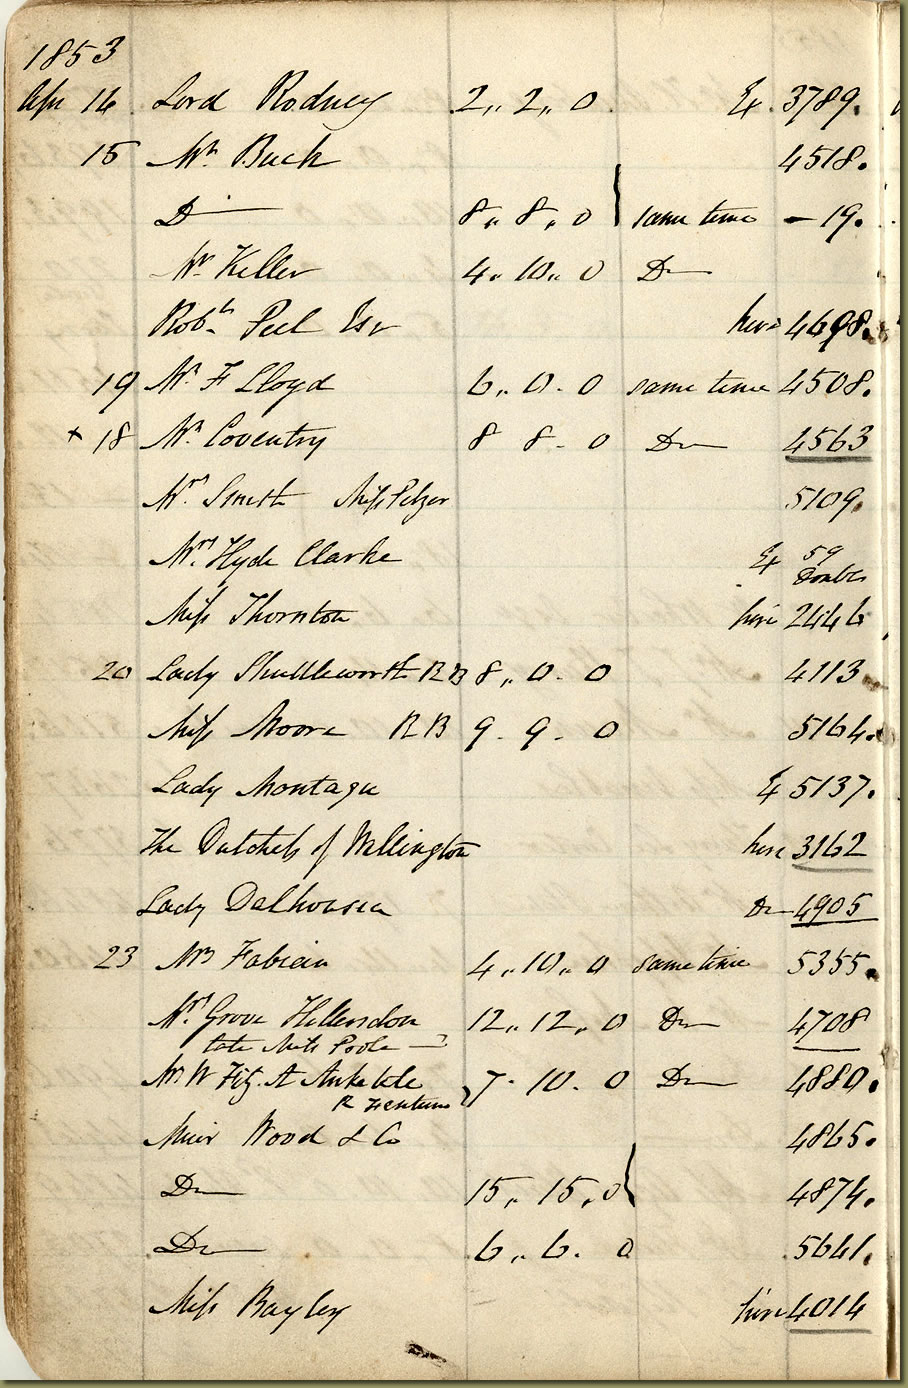 1853
Apr 14 Lord Rodney 2,, 2,, 0 Ex. 3789.
15 Mr Buck 4518.
Do 8,, 8,, 0 same time – 19.
Mr Keller 4,, 10,, 0 Do
Robt Peel Esr hire 4698.
19 Mr F Lloyd 6,, 0. 0 same time 4508.
+ 18 Mr Coventry 8 8. 0 Do 4563
Mrs Smith Miss Pelzer 5109.
Mrs Hyde Clarke Ex 59
Double
Miss Thornton hire 2446
20 Lady Shuttleworth RB 8,, 0. 0 4113
Miss Moore RB 9. 9. 0 5164.
Lady Montagu Ex 5137.
The Dutchess of Wellington hire 3162
Lady Dalhousie Do 4905
23 Mrs Fabian 4,, 10,, 0 same time 5355.
Mrs Grove Hillersdon 12,, 12,, 0 Do 4708
late Miss Poole
Mr W Fitz. A Anketele 7. 10. 0 Do 4880.
R
Muir Wood & Co 4865.
Do 15,, 15,, 0 4874.
Do 6,, 6. 0 5641.
Miss Bayley hire 4014